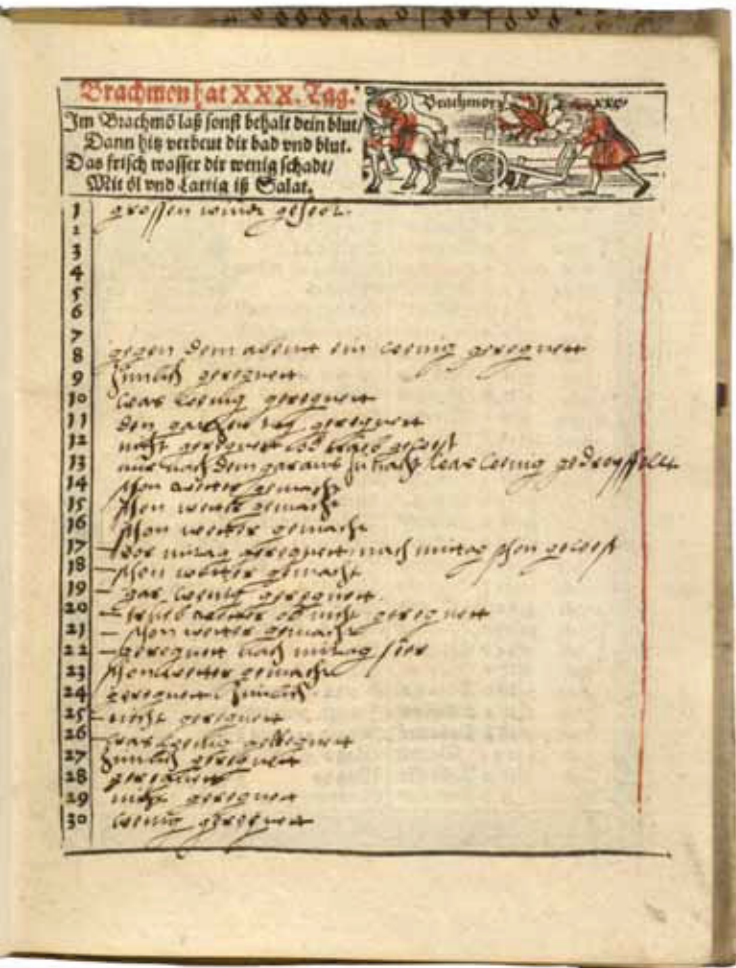 Brachmon hat XXX. Tag.
Im Brachmō laß sonst behalt dein blut/
Dann hitz verbeut dir bad vnd blut.
Das frisch wasser dir wenig schadt/
Mit öl vnd Lattig iß Salat.
Brachmon
XXX
1 grossen windt
2
3
4
5
6
7
8 gegen dem abent ein wenig geregnett
9 Zimlich geregnett
10 wenig geregnett
11 den gantzen tag geregnett
12 nicht geregnett
13 nur nach dem garaus zu nacht wenig
14 schon wetter gemacht
15 schon wetter gemacht
16 schon wetter gemacht
17 vor mitag geregnett nach mittag schon
18 schon wetter gemacht
19 gar wenig geregnett
20 wetter ob nicht geregnett
21 schon wetter gemacht
22 geregnett nach mittag
23 schon wetter gemacht
24 geregnett Zimlich
25 nicht geregnett
26 wenig geregnett
27 Zimlich geregnett
28 geregnett
29 nicht geregnett
30 wenig geregnett